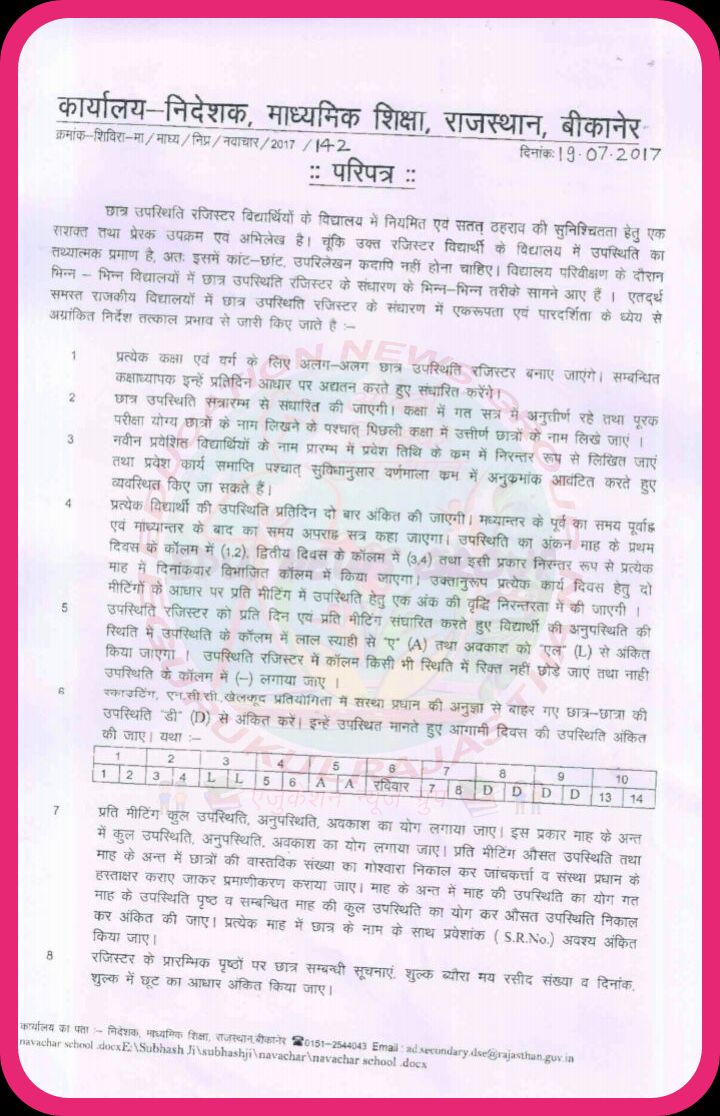 कार्यालय–निदेशक, माध्यमिक शिक्षा, राजस्थान, बीकानेर
क्रमांक–शिविरा–मा/माध्य/निप्र/नवाचार/2017 /142
दिनांक: 19.07.2017
:: परिपत्र ::
छात्र उपस्थिति रजिस्टर विद्यार्थियों के विद्यालय में नियमित एवं सतत् ठहराव की सुनिश्चितता हेतु एक
सशक्त तथा प्रेरक उपक्रम एवं अभिलेख है। चूंकि उक्त रजिस्टर विद्यार्थी के विद्यालय में उपस्थिति का
तथ्यात्मक प्रमाण है, अतः इसमें कांट–छांट, उपरिलेखन कदापि नहीं होना चाहिए। विद्यालय परिवीक्षण के दौरान
भिन्न – भिन्न विद्यालयों में छात्र उपस्थिति रजिस्टर के संधारण के भिन्न–भिन्न तरीके सामने आए हैं । एतदर्थ
समस्त राजकीय विद्यालयों में छात्र उपस्थिति रजिस्टर के संधारण में एकरूपता एवं पारदर्शिता के ध्येय से
अग्रांकित निर्देश तत्काल प्रभाव से जारी किए जाते है :–
1 प्रत्येक कक्षा एवं वर्ग के लिए अलग–अलग छात्र उपस्थिति रजिस्टर बनाए जाएंगे। सम्बन्धित
कक्षाध्यापक इन्हें प्रतिदिन आधार पर अद्यतन करते हुए संधारित करेंगे।
2 छात्र उपस्थिति सत्रारम्भ से संधारित की जाएगी। कक्षा में गत सत्र में अनुत्तीर्ण रहे तथा पूरक
परीक्षा योग्य छात्रों के नाम लिखने के पश्चात् पिछली कक्षा में उत्तीर्ण छात्रों के नाम लिखे जाएं ।
3 नवीन प्रवेशित विद्यार्थियों के नाम प्रारम्भ में प्रवेश तिथि के कम में निरन्तर रूप से लिखित जाएं
तथा प्रवेश कार्य समाप्ति पश्चात् सुविधानुसार वर्णमाला कम में अनुक्रमांक आवंटित करते हुए
व्यवस्थित किए जा सकते हैं।
4 प्रत्येक विद्यार्थी की उपस्थिति प्रतिदिन दो बार अंकित की जाएगी। मध्यान्तर के पूर्व का समय पूर्वाह्न
एवं मध्यान्तर के बाद का समय अपराह्न सत्र कहा जाएगा। उपस्थिति का अंकन माह के प्रथम
दिवस के कॉलम में (1,2), द्वितीय दिवस के कॉलम में (3,4) तथा इसी प्रकार निरन्तर रूप से प्रत्येक
माह में दिनांकवार विभाजित कॉलम में किया जाएगा। उक्तानुरूप प्रत्येक कार्य दिवस हेतु दो
मीटिंगों के आधार पर प्रति मीटिंग में उपस्थिति हेतु एक अंक की वृद्धि निरन्तरता में की जाएगी ।
5 उपस्थिति रजिस्टर को प्रति दिन एवं प्रति मीटिंग संधारित करते हुए विद्यार्थी की अनुपस्थिति की
स्थिति में उपस्थिति के कॉलम में लाल स्याही से "ए" (A) तथा अवकाश को "एल" (L) से अंकित
किया जाएगा । उपस्थिति रजिस्टर में कॉलम किसी भी स्थिति में रिक्त नहीं छोड़े जाएं तथा नाही
उपस्थिति के कॉलम में (–) लगाया जाए ।
6 स्काउटिंग, एन.सी.सी. खेलकूद प्रतियोगिता में संस्था प्रधान की अनुज्ञा से बाहर गए छात्र–छात्रा की
उपस्थिति "डी" (D) से अंकित करें। इन्हें उपस्थित मानते हुए आगामी दिवस की उपस्थिति अंकित
की जाए। यथा :–
1 2 3 4 5 6 7 8 9 10
1 2 3 4 L L 5 6 A A रविवार 7 8 D D D D 13 14
एजुकेशन न्यूज ग्रुप
7 प्रति मीटिंग कुल उपस्थिति, अनुपस्थिति, अवकाश का योग लगाया जाए। इस प्रकार माह के अन्त
में कुल उपस्थिति, अनुपस्थिति, अवकाश का योग लगाया जाए। प्रति मीटिंग औसत उपस्थिति तथा
माह के अन्त में छात्रों की वास्तविक संख्या का गोश्वारा निकाल कर जांचकर्त्ता व संस्था प्रधान के
हस्ताक्षर कराए जाकर प्रमाणीकरण कराया जाए। माह के अन्त में माह की उपस्थिति का योग गत
माह के उपस्थिति पृष्ठ व सम्बन्धित माह की कुल उपस्थिति का योग कर औसत उपस्थिति निकाल
कर अंकित की जाए। प्रत्येक माह में छात्र के नाम के साथ प्रवेशांक ( S.R.No.) अवश्य अंकित
किया जाए।
8 रजिस्टर के प्रारम्भिक पृष्ठों पर छात्र सम्बन्धी सूचनाएं, शुल्क ब्यौरा मय रसीद संख्या व दिनांक,
शुल्क में छूट का आधार अंकित किया जाए।
कार्यालय का पता :– निदेशक, माध्यमिक शिक्षा, राजस्थान,बीकानेर ☎0151–2544043 Email : ad.secondary.dse@rajasthan.gov.in
navachar school .docxE:\Subhash Ji\subhashji\navachar\navachar school .docx